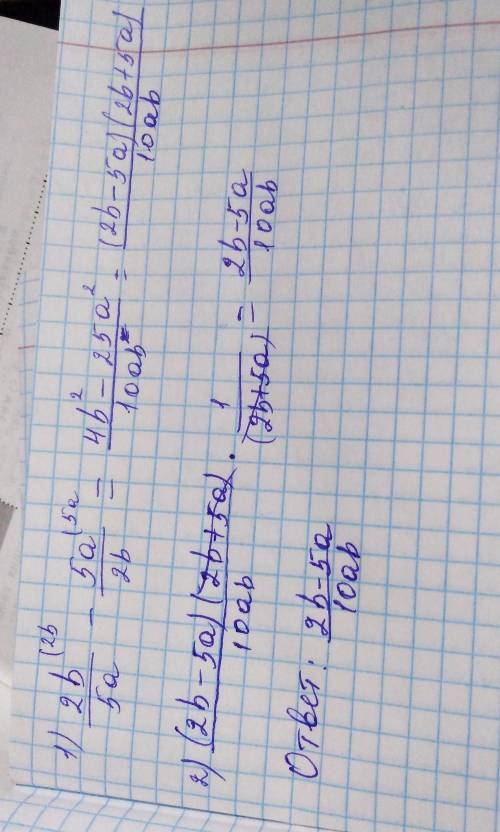 1) 2b/5a (2b - 5a/2b (5a = (4b² - 25a²)/10ab = (2b-5a)(2b+5a)/10ab
2) (2b-5a)(2b+5a)/10ab · 1/(2b+5a) = 2b-5a/10ab
Ответ: 2b-5a/10ab